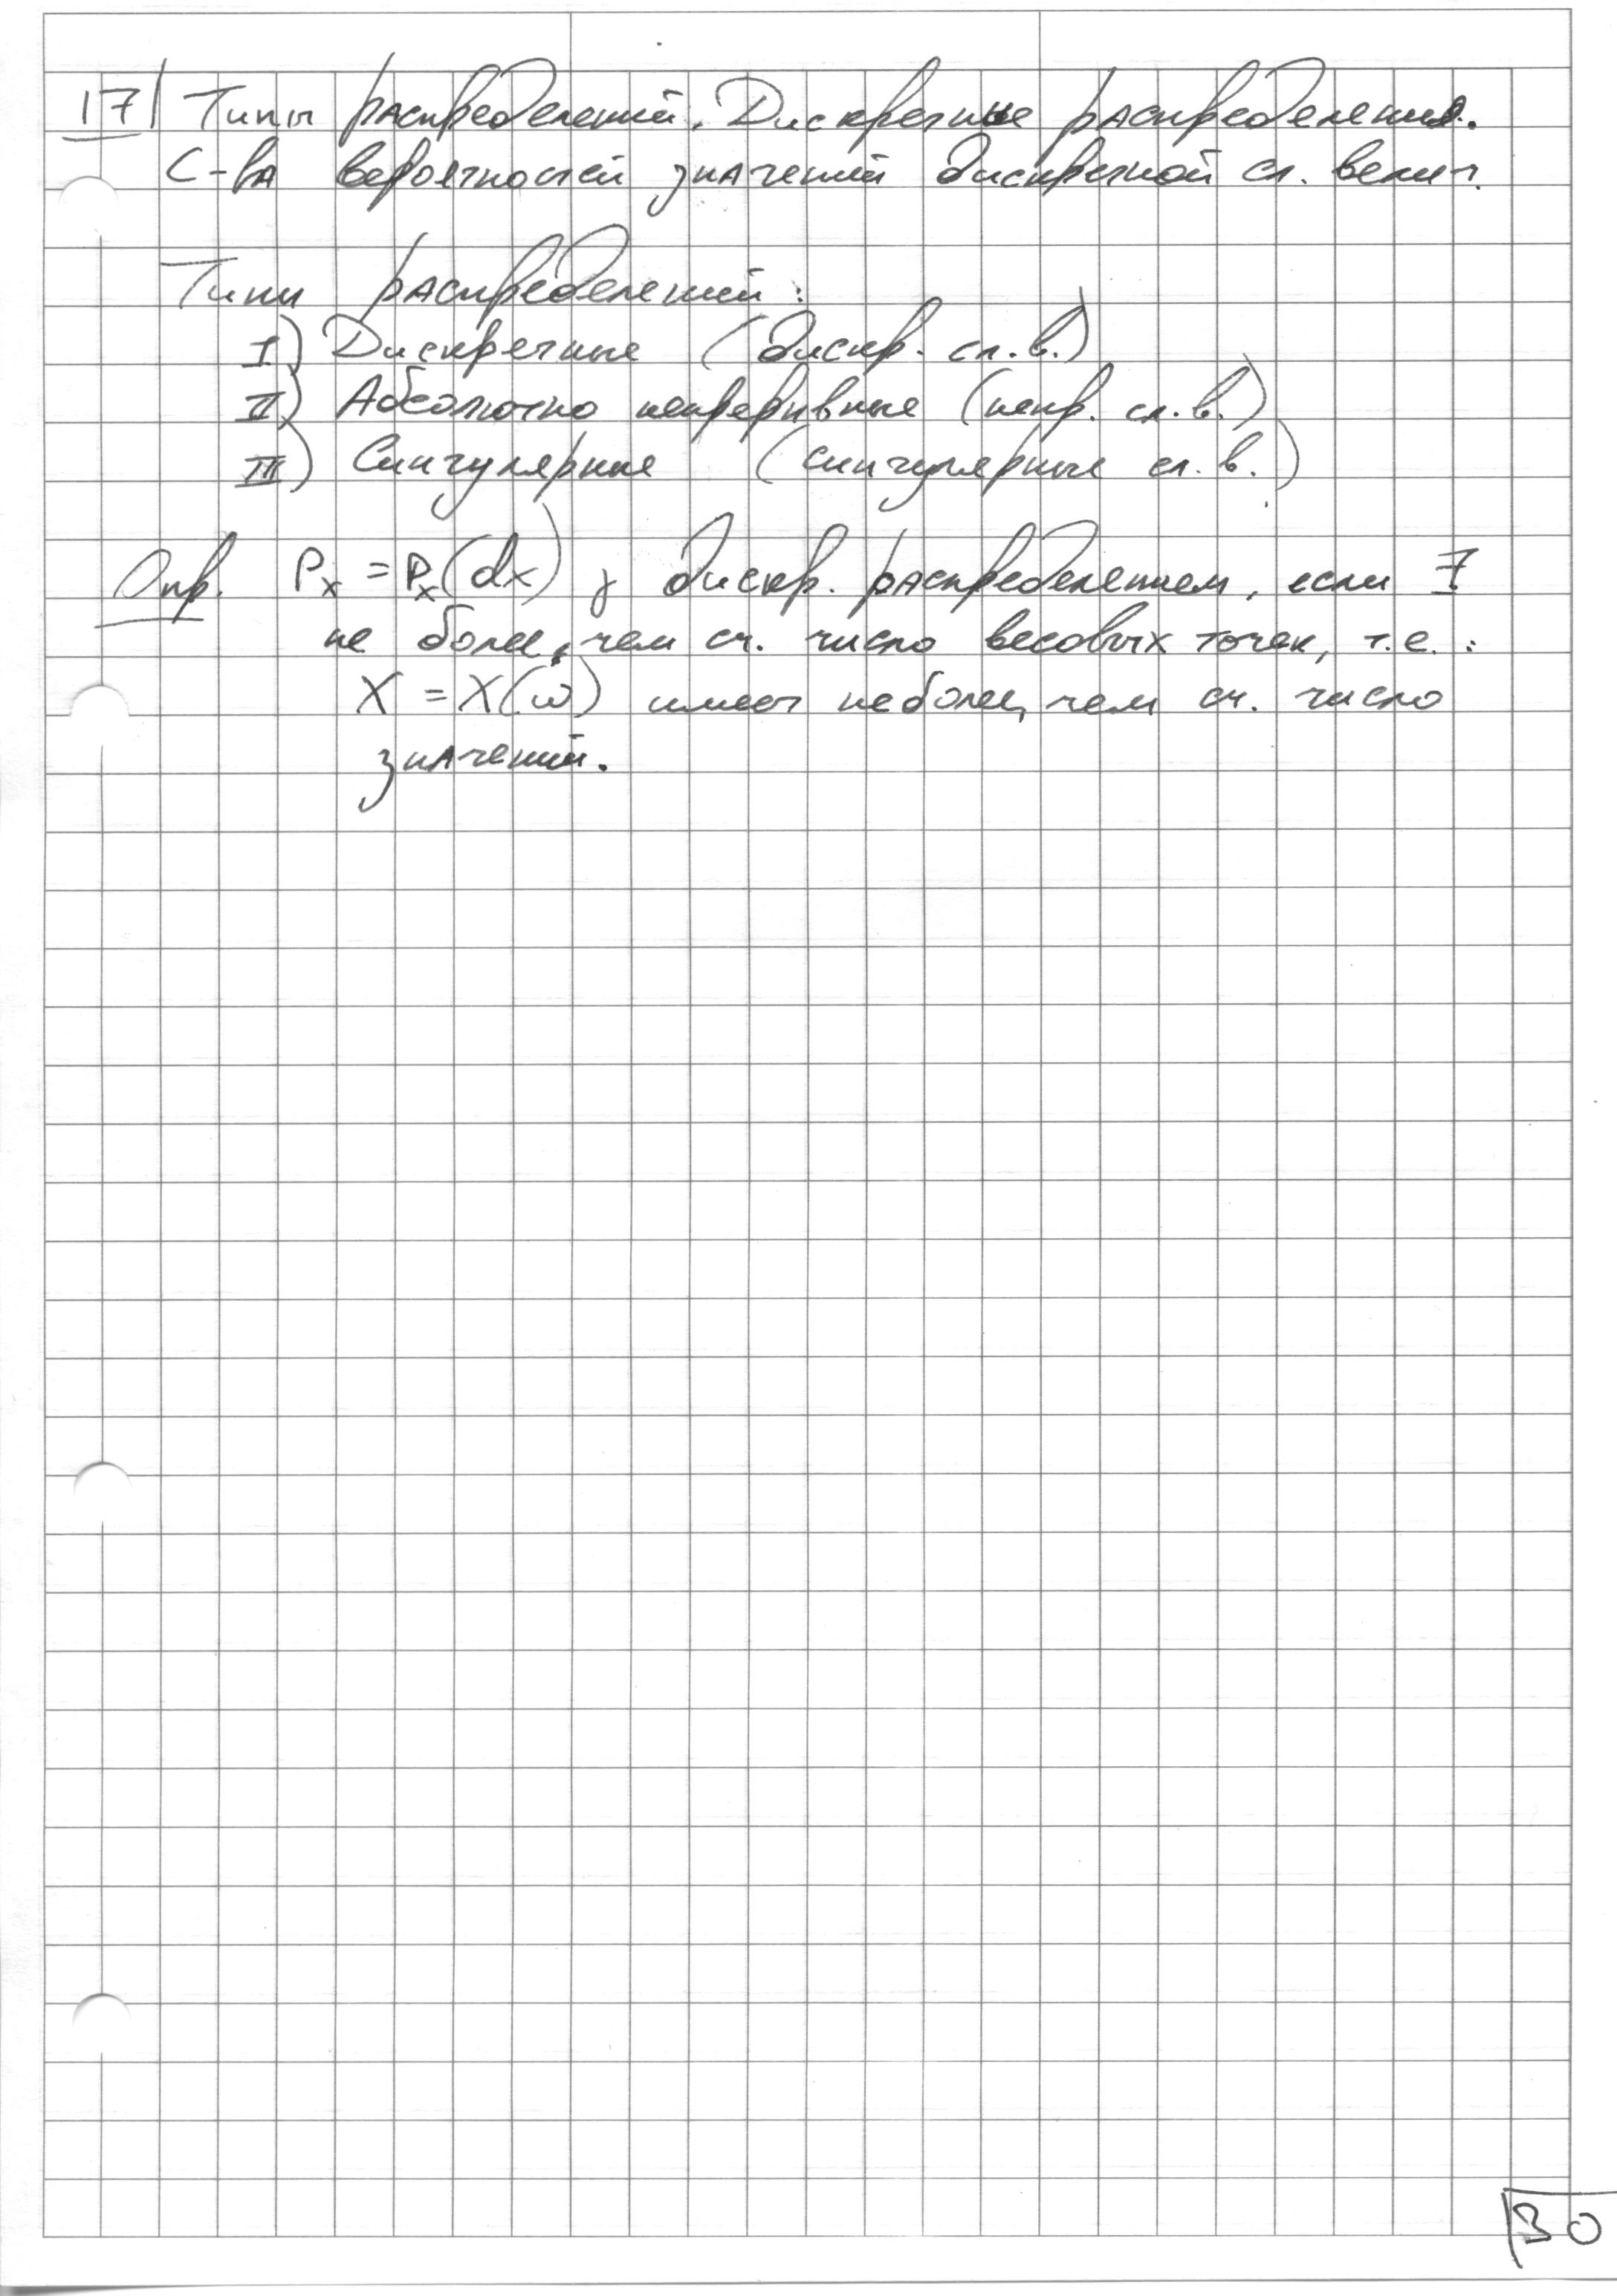 17| Типы распределений. Дискретные распределения.
С-ва вероятностей значений дискретной сл. велич.
Типы распределений:
I) Дискретные (дискр. сл.в.)
II) Абсолютно непрерывные (непр. сл.в.)
III) Сингулярные (сингулярные сл.в.)
Опр. Pₓ = Pₓ(dx) дискр. распределением, если ∃
не более, чем сч. число весовых точек, т.е.:
X = X(ω) имеет не более, чем сч. число
значений.
30